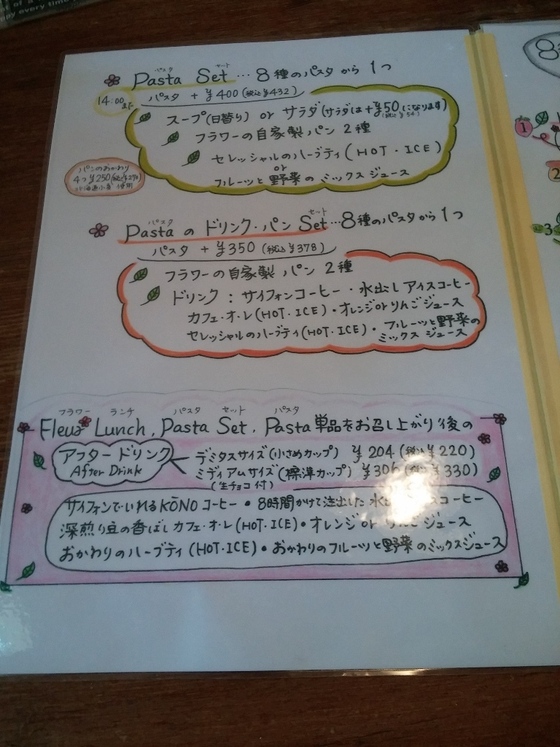 パスタ セット
Pasta Set…8種のパスタから1つ
14:00まで
パスタ + ¥400(税込¥432)
スープ(日替り) or サラダ(サラダは+¥50になります)
フラワーの自家製パン 2種
セレッシャルのハーブティ(HOT・ICE)
or
フルーツと野菜のミックスジュース
パンのおかわり
4ヶ ¥250
使用
パスタ セット
Pasta の ドリンク・パン Set…8種のパスタから1つ
パスタ + ¥350(税込¥378)
フラワーの自家製パン 2種
ドリンク：サイフォンコーヒー・水出しアイスコーヒー
カフェ・オ・レ(HOT・ICE)・オレンジorりんごジュース
セレッシャルのハーブティ(HOT・ICE)・フルーツと野菜の
ミックスジュース
フラワー ランチ パスタ セット パスタ
Fleur Lunch, Pasta Set, Pasta単品をお召し上がり後の
アフタードリンク
After Drink
デミタスサイズ(小さめカップ) ¥204(税込¥220)
ミディアムサイズ(標準カップ) ¥306(税込¥330)
(生チョコ付)
サイフォンでいれるKŌNOコーヒー・8時間かけて注出した水出しアイスコーヒー
深煎り豆の香ばしカフェ・オ・レ(HOT・ICE)・オレンジorりんごジュース
おかわりのハーブティ(HOT・ICE)・おかわりのフルーツと野菜のミックスジュース